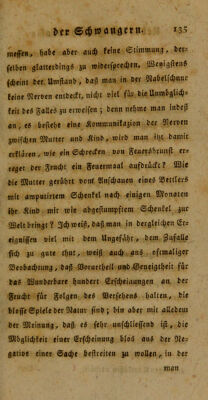 der Schwangern. 135
messen, habe aber auch keine Stimmung, der-
selben glatterdings zu widersprechen. Wenigstens
scheint der Umstand, daß man in der Nabelschnur
keine Nerven entdeckt, nicht viel für die Unmöglich-
keit des Falles zu erweisen; denn nehme man indeß
an, es bestehe eine Kommunikazion der Nerven
zwischen Mutter und Kind, wird man ihr damit
erklären, wie ein Schrecken von Feuersbrunst er-
reget der Frucht ein Feuermaal aufdrückt? Wie
die Mutter gerührt vom Anschauen eines Bettlers
mit ampuzirtem Schenkel nach einigen Monaten
ihr Kind mit wie abgestumpftem Schenkel zur
Welt bringt? Ich weiß, daß man in dergleichen Er-
eignissen viel mit dem Ungefähr, dem Zufalle
sich zu gute thut, weiß auch aus oftmaliger
Beobachtung, daß Vorurtheil und Geneigtheit für
das Wunderbare hundert Erscheinungen an der
Frucht für Folgen des Versehens halten, die
blosse Spiele der Natur sind; bin aber mit alledem
der Meinung, daß es sehr unschliessend ist, die
Möglichkeit einer Erscheinung blos aus der Ne-
gation einer Sache bestreiten zu wollen, in der
man